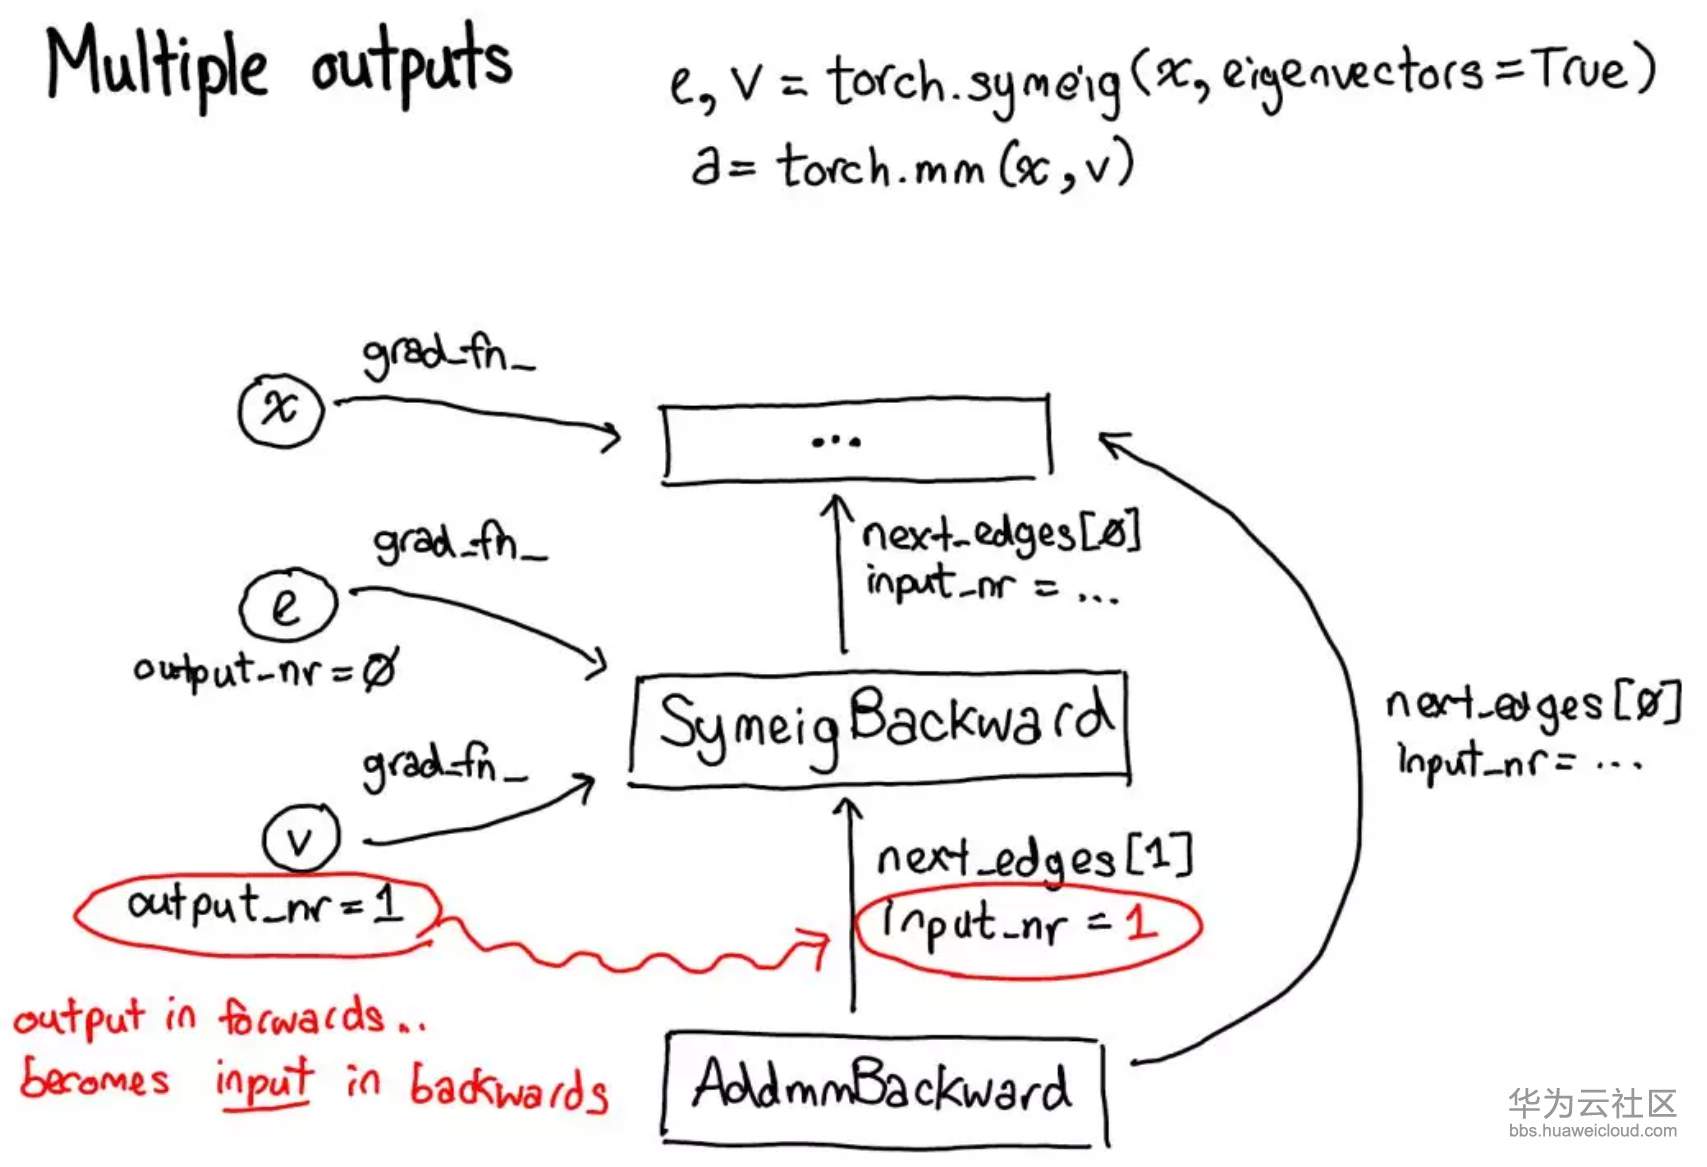 Multiple outputs
e, v = torch.symeig(x, eigenvectors=True)
a = torch.mm(x, v)
grad_fn_
x
...
grad_fn_
next_edges[0]
input_nr = ...
e
output_nr = 0
SymeigBackward
next_edges[0]
input_nr = ...
grad_fn_
v
next_edges[1]
output_nr = 1
input_nr = 1
output in forwards..
becomes input in backwards
AddmmBackward
华为云社区
bbs.huaweicloud.com